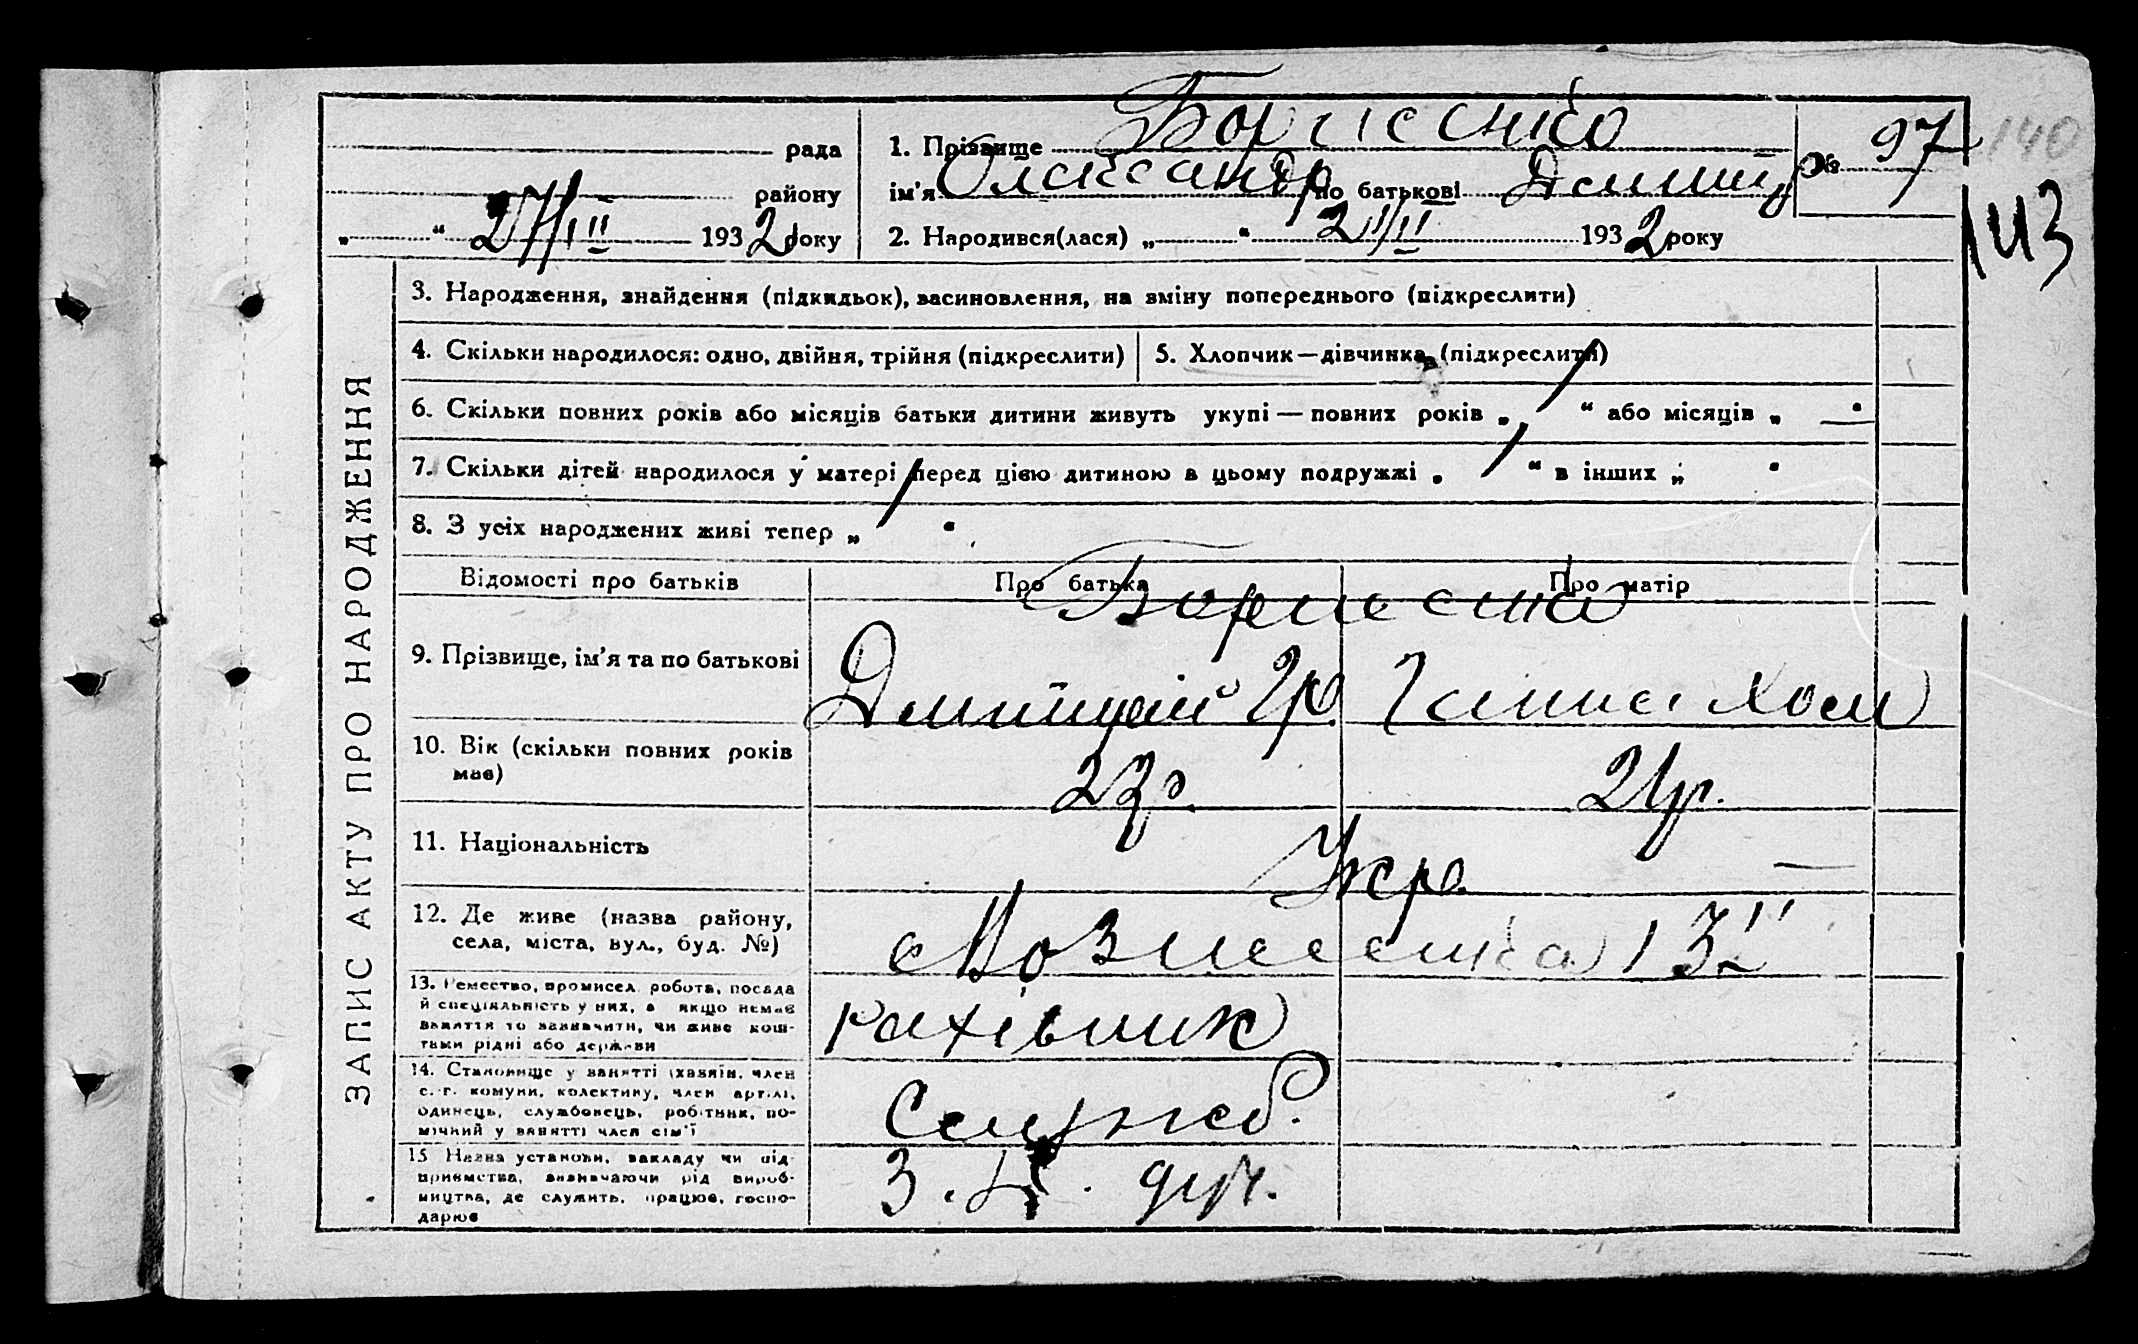 140
143
рада
району
„ “ 27/III 1932 року
1. Прізвище Борисенко
ім'я Олександр по батькові Дмитр
№ 97
2. Народився(лася) „ “ 2 1932 року
ЗАПИС АКТУ ПРО НАРОДЖЕННЯ
3. Народження, знайдення (підкидьок), васиновлення, на зміну попереднього (підкреслити)
4. Скільки народилося: одно, двійня, трійня (підкреслити)
5. Хлопчик — дівчинка (підкреслити)
6. Скільки повних років або місяців батьки дитини живуть укупі — повних років „ / “ або місяців „ — “
7. Скільки дітей народилося у матері перед цією дитиною в цьому подружжі „ / “ в інших „ “
8. З усіх народжених живі тепер „ / “
Відомості про батьків
Про батька
Про матір
Борисенко
9. Прізвище, ім'я та по батькові
Дмитрий Гр
Ганна Хом
10. Вік (скільки повних років має)
22 р.
21 р.
11. Національність
Укр. —
12. Де живе (назва району,
села, міста, вул., буд. №)
с Вознесенка
13. Ремество, промисел, робота, посада
й спеціяльність у них, а якщо немає
заняття то зазначити, чи живе кош-
тами рідні або держави
рахівник
14. Становище у занятті (хазяїн, член
с.-г. комуни, колективу, член артілі,
одинець, службовець, робітник, по-
мічний у занятті член сім'ї
Служб.
15 Назва установи, закладу чи під-
приємства, зазначаючи рід вироб-
ництва, де служить, працює, госпо-
дарює